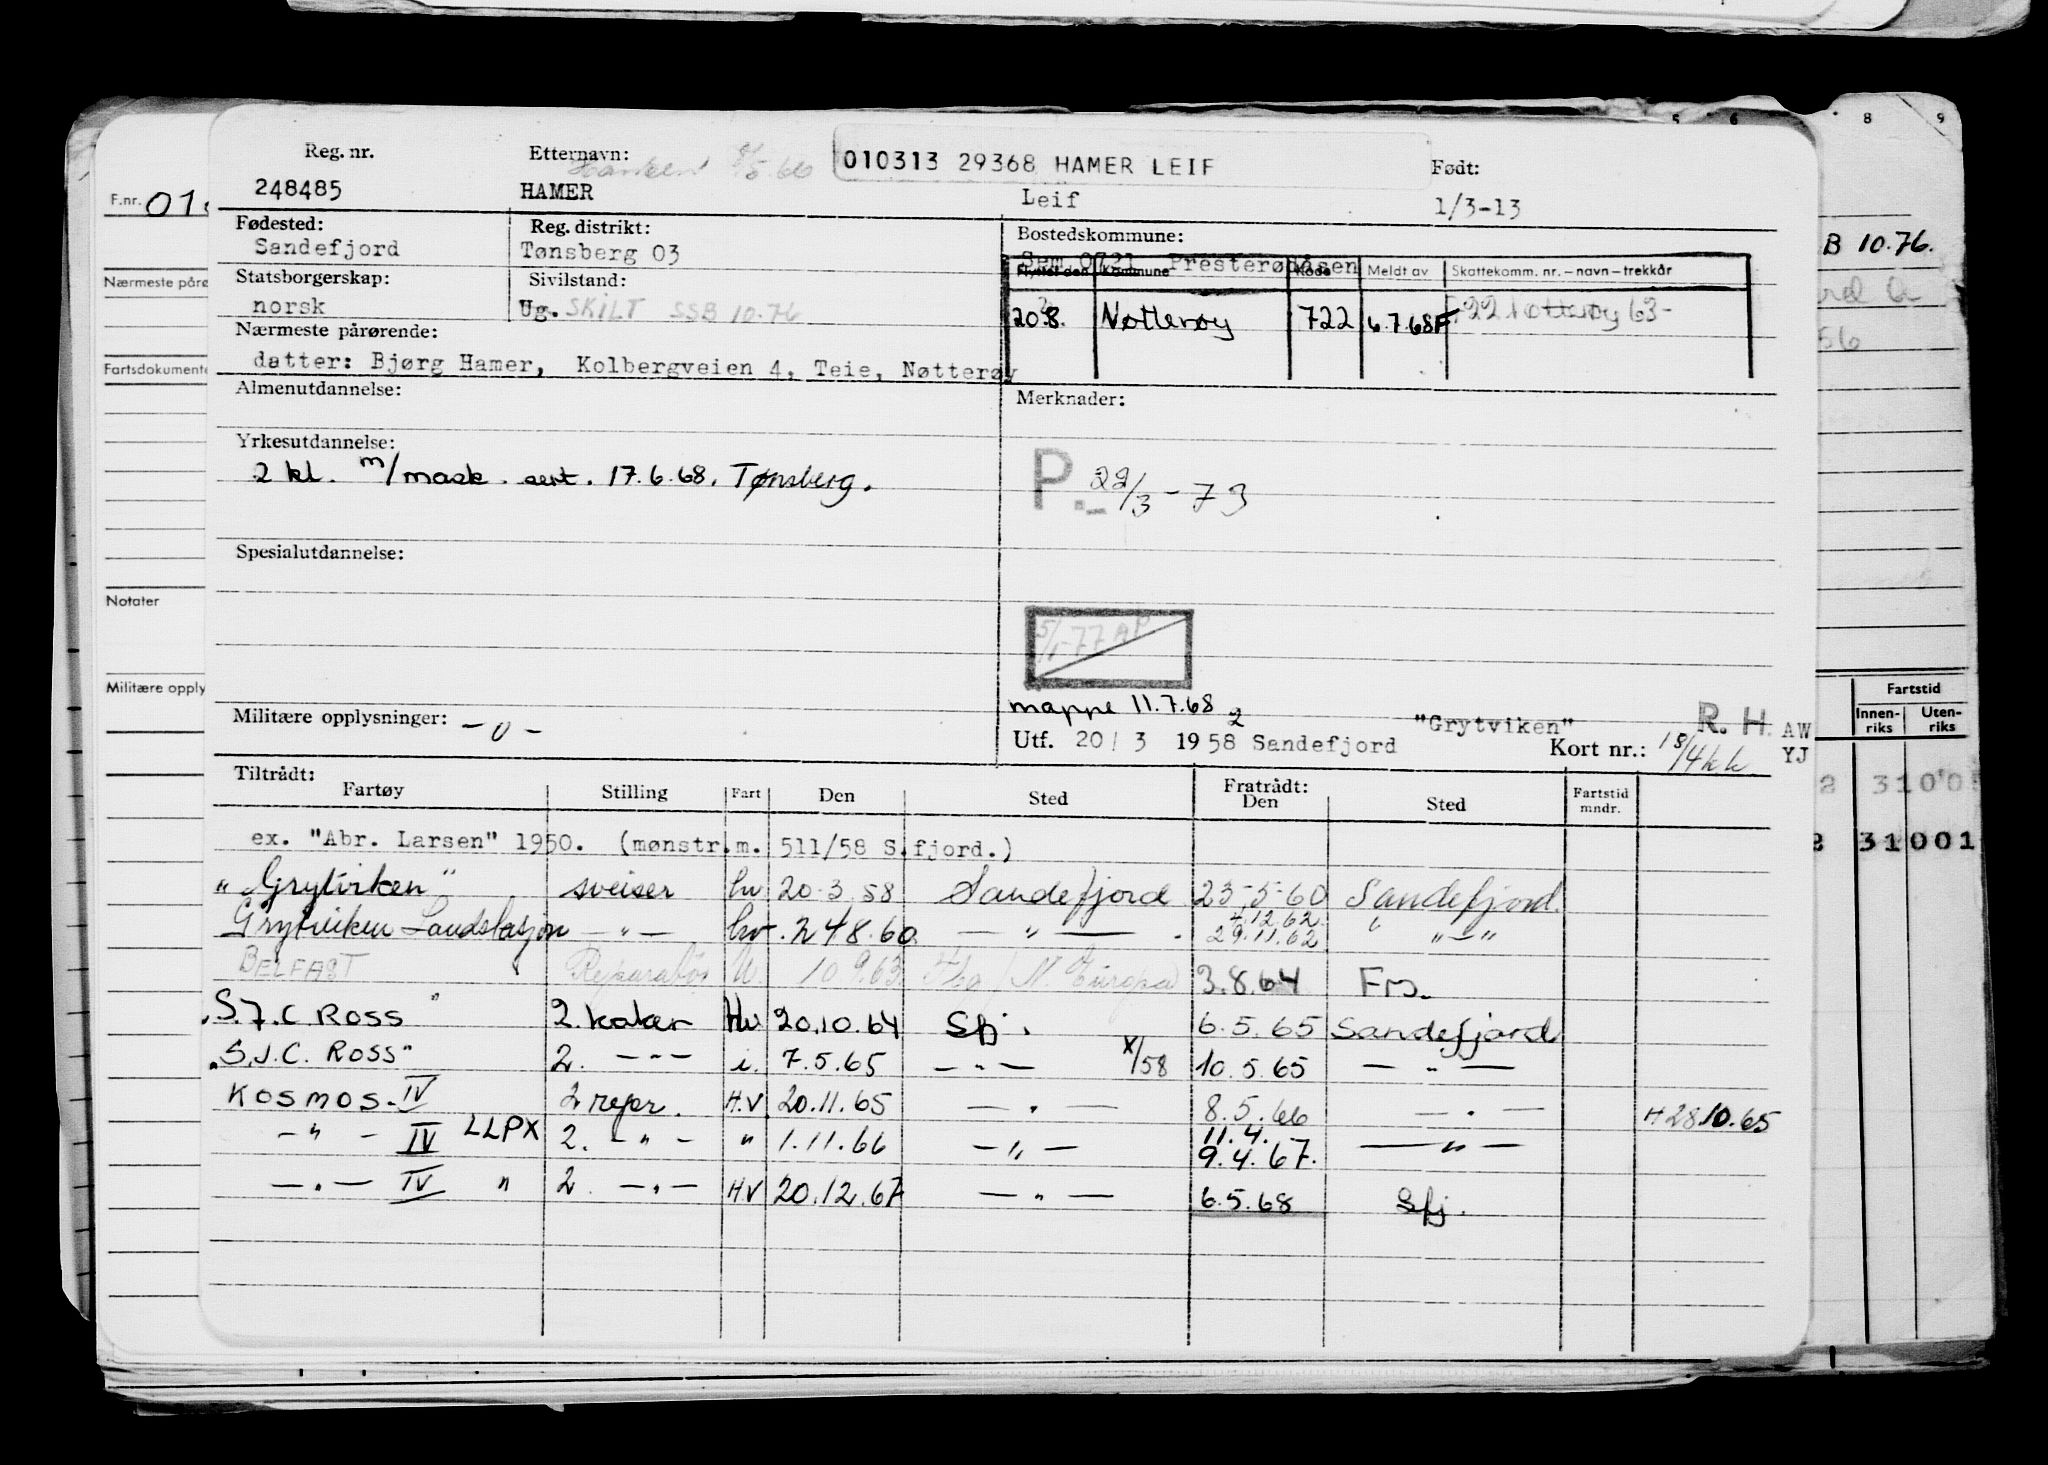 5 6 8 9
Reg. nr. Etternavn: 010313 29368 HAMER LEIF Født:
248485 HAMER Leif 1/3-13
F.nr. 010
Fødested: Reg. distrikt: Bostedskommune:
Sandefjord Tønsberg 03 Sem 0721 Presterødåsen
B 10.76.
Flyttet den Kommune Kode Meldt av Skattekomm. nr. – navn – trekkår
Statsborgerskap: Sivilstand:
Nærmeste pårø
norsk Ug. SKILT SSB 10.76
20.8. Nøtterøy 722 6.7.68F 722 Nøtterøy 63-
Nærmeste pårørende:
datter: Bjørg Hamer, Kolbergveien 4, Teie, Nøtterøy
Fartsdokumente
Almenutdannelse: Merknader:
Yrkesutdannelse:
2 kl. m/mask. sert. 17.6.68. Tønsberg.
P. 22/3-73
Spesialutdannelse:
Notater
5/1-77 AP
Militære opply
mappe 11.7.68
Militære opplysninger: -0- 2 "Grytviken" R. H. AW
Utf. 20/3 1958 Sandefjord Kort nr.: 15/4kk YJ
Fartstid
Innen-riks Uten-riks
Tiltrådt: Fratrådt:
Fartøy Stilling Fart Den Sted Den Sted Fartstid mndr.
ex. "Abr. Larsen" 1950. (mønstr.m. 511/58 S.fjord.)
2 31001
"Grytviken" sveiser hv 20.3.58 Sandefjord 23-5-60 Sandefjord.
Grytviken Landstasjon — " — hv. 24.8.60 — " — 4.12.62 29.11.62 " — " —
BELFAST Reparatør U. 10.9.63. Tbg / N. Europa 3.8.64 Frs.
"S.J.C. ROSS" 2. koker Hv 20.10.64 Sfj. 6.5.65 Sandefjord
"S.J.C. ROSS" 2. — " — i. 7.5.65 — " — X/58 10.5.65 — " —
KOSMOS-IV 2 repr. H.V. 20.11.65 — " — 8.5.66 — " — H 28.10.65
— " — IV LLPX 2. — " — " 1.11.66 — " — 11.4. 9.4.67. — " —
— " — IV " 2. — " — H.V 20.12.67 — " — 6.5.68 Sfj.